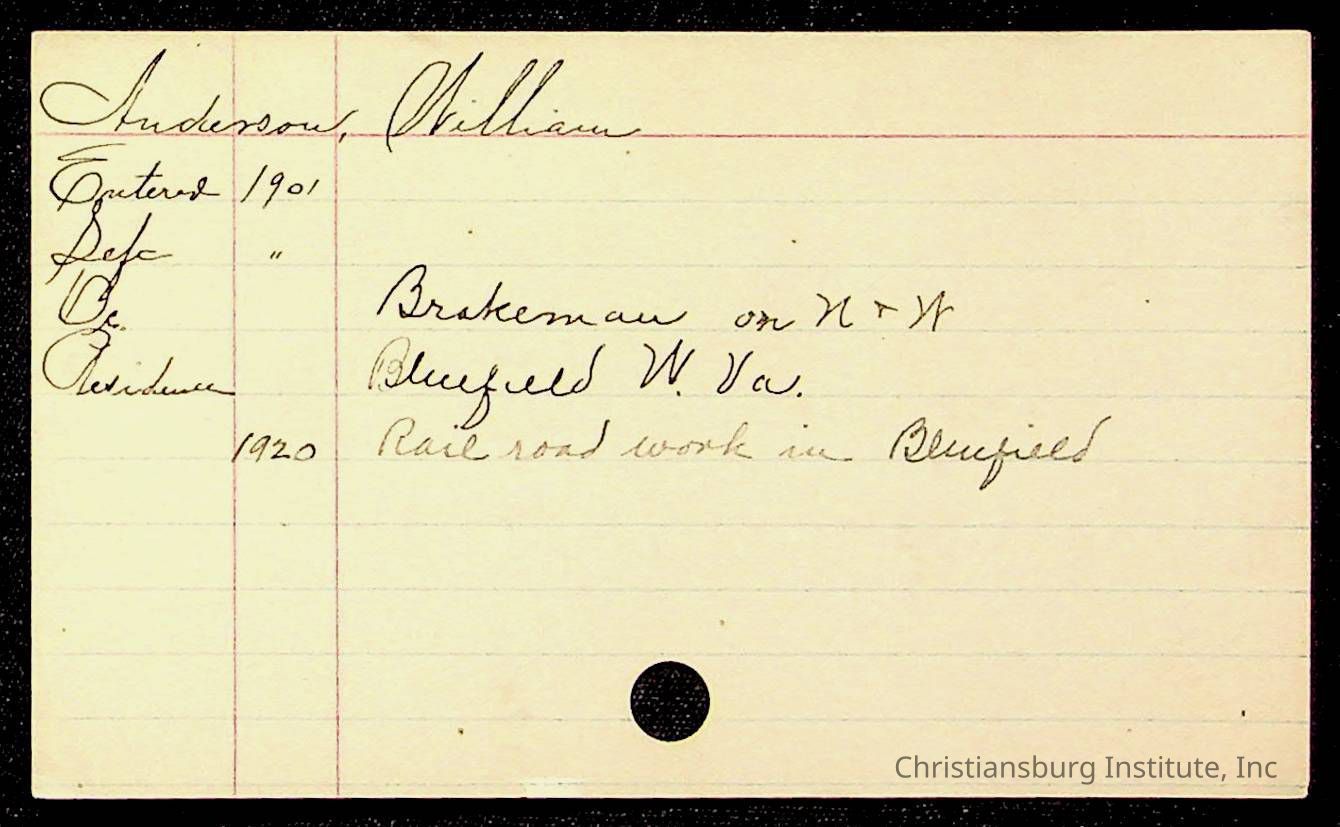 Anderson, William
Entered 1901
Left "
Oc. Brakeman on N + W
Residence Bluefield W. Va.
1920 Rail road work in Bluefield
Christiansburg Institute, Inc